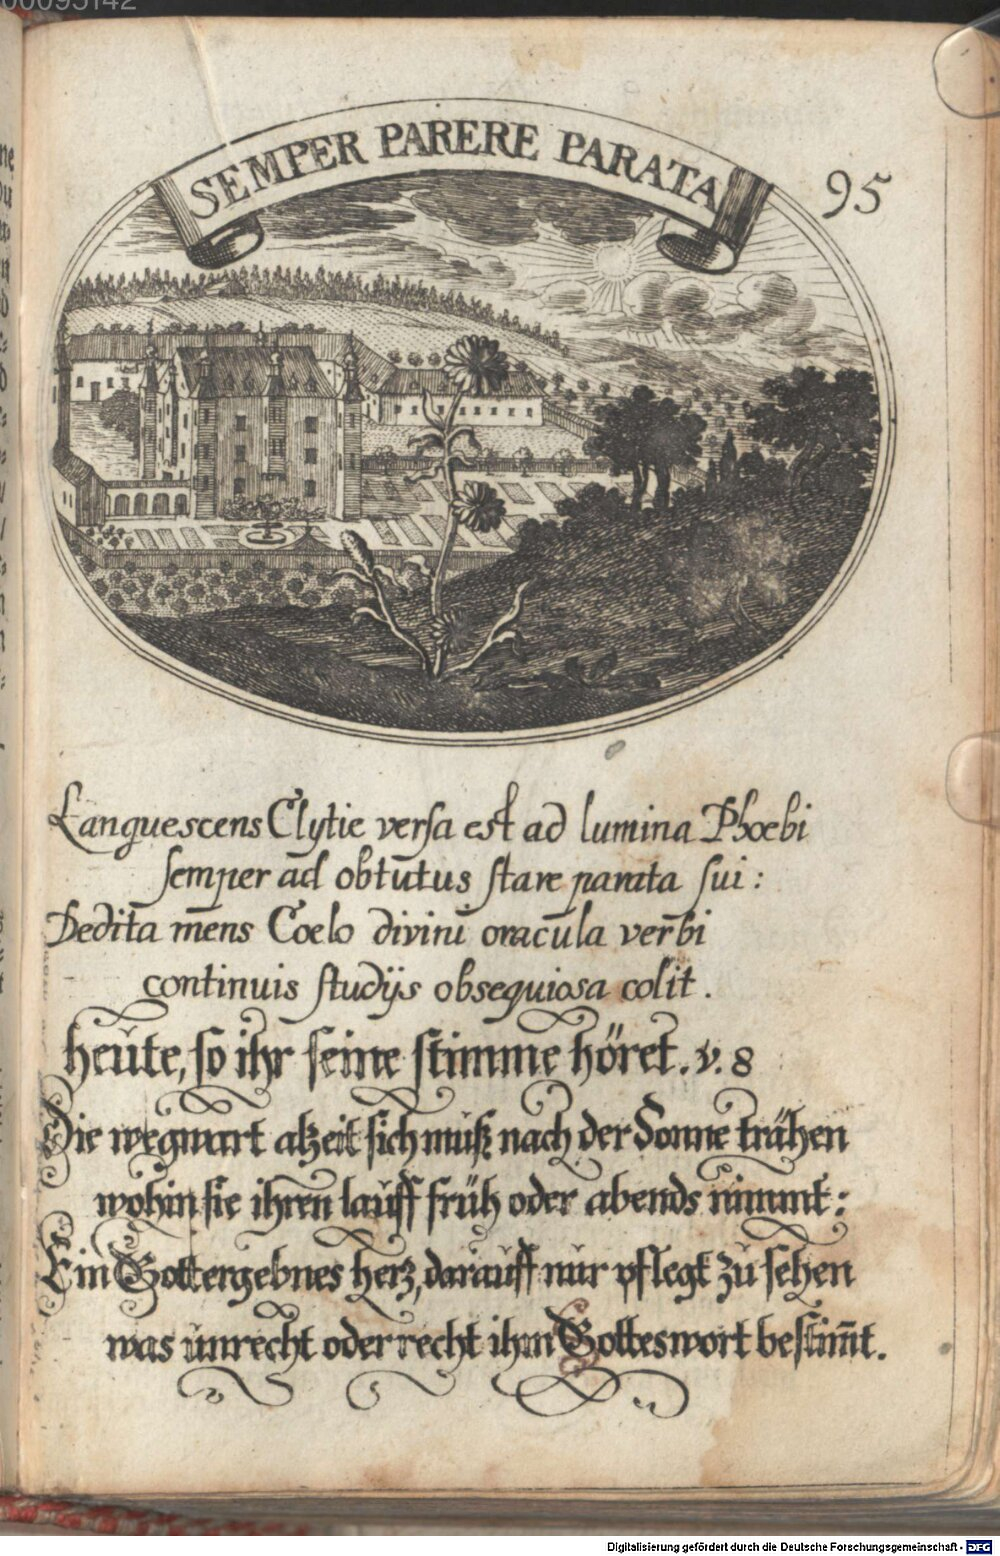 00095142
SEMPER PARERE PARATA
95
Languescens Clytie versa est ad lumina Phoebi
semper ad obtutus stare parata sui:
Dedita mens Coelo divini oracula verbi
continuis studijs obsequiosa colit.
heute, so ihr seine stimme höret. v. 8
Die wegwart alzeit sich muß nach der Sonne trähen
wohin sie ihren lauff früh oder abends nimmt:
Ein Gottergebnes herz, darauff nur pflegt zu sehen
was unrecht oder recht ihm Gotteswort bestim̃t.
Digitalisierung gefördert durch die Deutsche Forschungsgemeinschaft - DFG